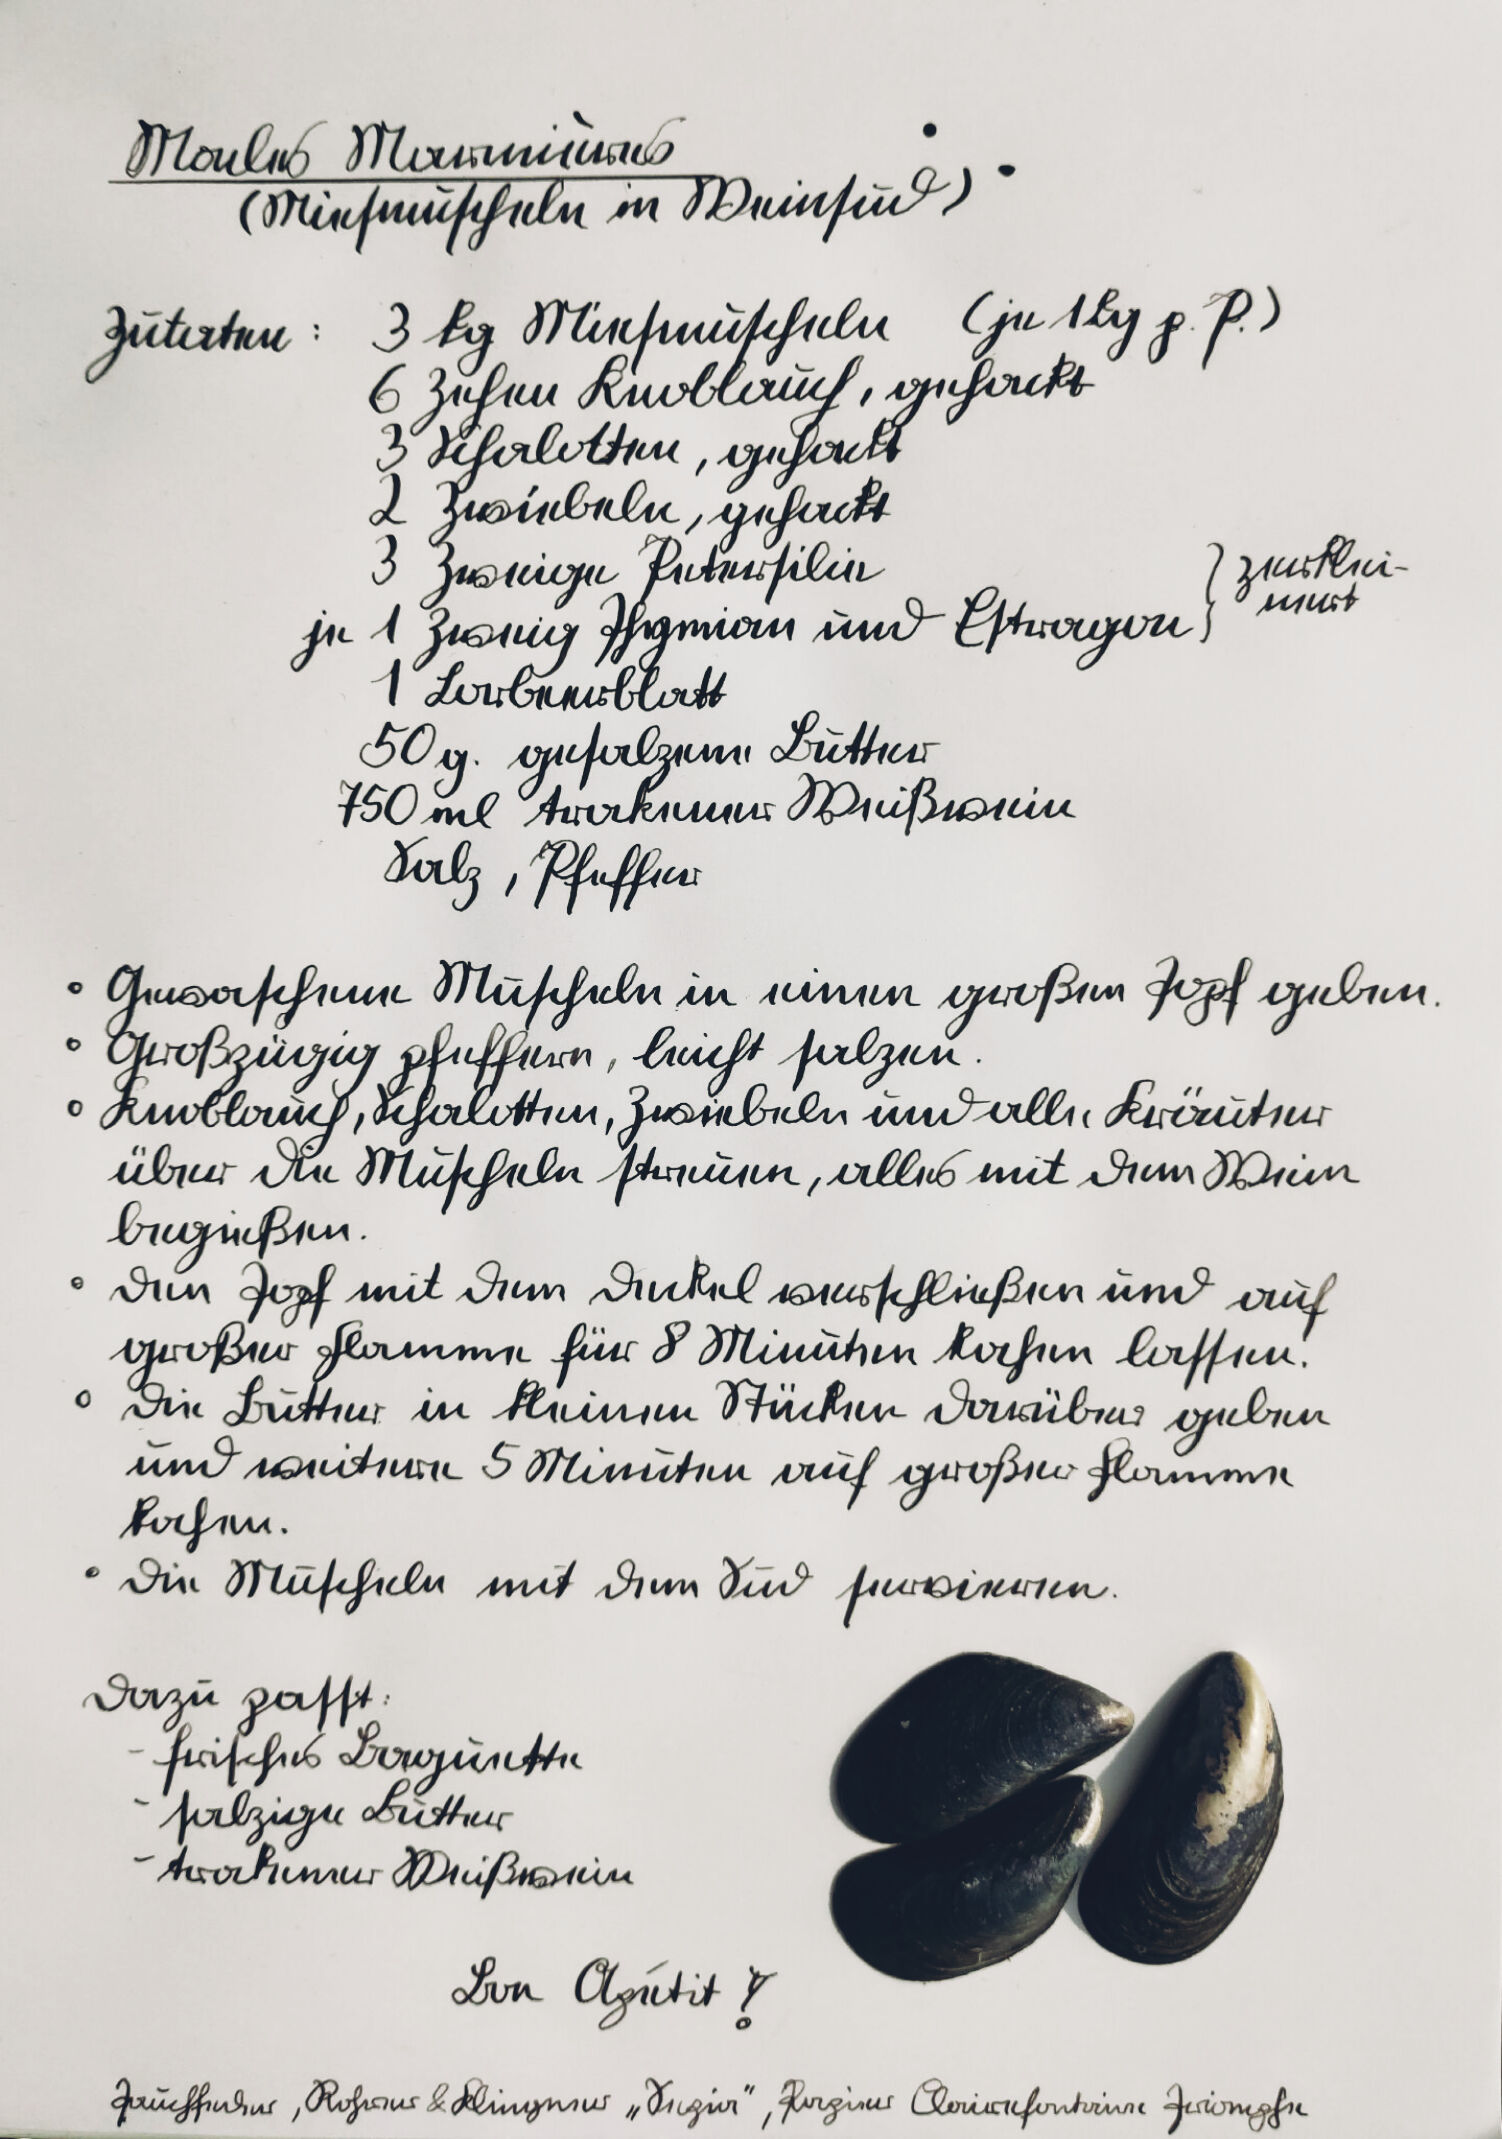 Moules Marinières
(Miesmuscheln in Weinsud)
Zutaten: 3 kg Miesmuscheln (je 1kg p. P.)
6 Zehen Knoblauch, gehackt
3 Schalotten, gehackt
2 Zwiebeln, gehackt
3 Zweige Petersilie
je 1 Zweig Thymian und Estragon } zerklei-
nert
1 Lorbeerblatt
50 g. gesalzene Butter
750 ml trockener Weißwein
Salz, Pfeffer
° Gewaschene Muscheln in einen großen Topf geben.
° Großzügig pfeffern, leicht salzen.
° Knoblauch, Schalotten, Zwiebeln und alle Kräuter
über die Muscheln streuen, alles mit dem Wein
begießen.
° Den Topf mit dem Deckel verschließen und auf
großer Flamme für 8 Minuten kochen lassen.
° Die Butter in kleinen Stücken darüber geben
und weitere 5 Minuten auf großer Flamme
kochen.
° Die Muscheln mit dem Sud servieren.
Dazu passt:
- frisches Baguette
- salzige Butter
- trockener Weißwein
Bon Apétit!
Tauchfeder, Rohrer & Klingner „Sepia“, Papier Clairefontaine Triomphe